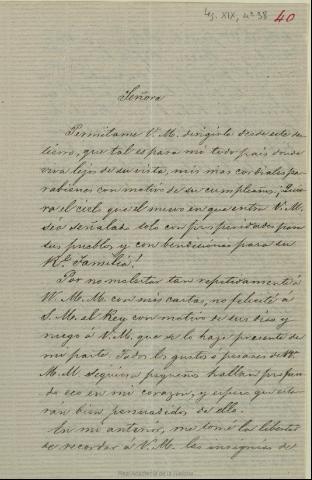 Leg. XIX, nº 38 40
Señora
Permitame V. M. dirigirla desde este des-
tierro, que tal es para mi todo pais donde
viva lejos de su vista, mis mas cordiales pa-
rabienes con motivo de su cumpleaños. ¡Quie-
ra el cielo que el nuevo en que entra V. M.
sea señalado solo con prosperidades para
sus pueblos y con bendiciones para su
Rl. Familia!
Por no molestar tan repetidamente á
VV. M. M. con mis cartas, no felicité á
S. M. el Rey con motivo de sus dias y
ruego á V. M. que se lo haga presente de
mi parte. Todos los gustos o pesares de VV.
M. M. siquiera pequeños hallan profun-
do eco en mi corazon, y espero que esta-
ran bien persuadidos de ello.
En mi anterior, me tomé la libertad
de recordar á V. M. las insignias de
Real Academia de la Historia